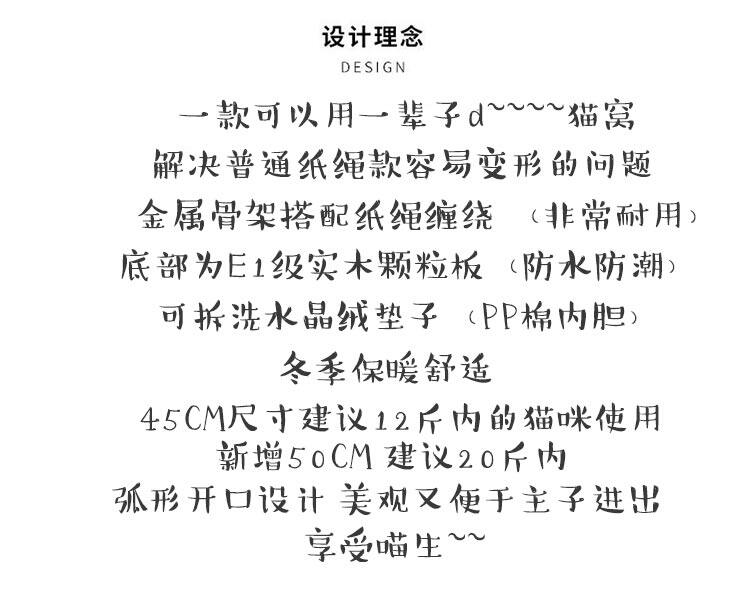 设计理念
DESIGN
一款可以用一辈子d~~~~猫窝
解决普通纸绳款容易变形的问题
金属骨架搭配纸绳缠绕 （非常耐用）
底部为E1级实木颗粒板（防水防潮）
可拆洗水晶绒垫子 （PP棉内胆）
冬季保暖舒适
45CM尺寸建议12斤内的猫咪使用
新增50CM 建议20斤内
弧形开口设计 美观又便于主子进出
享受喵生~~